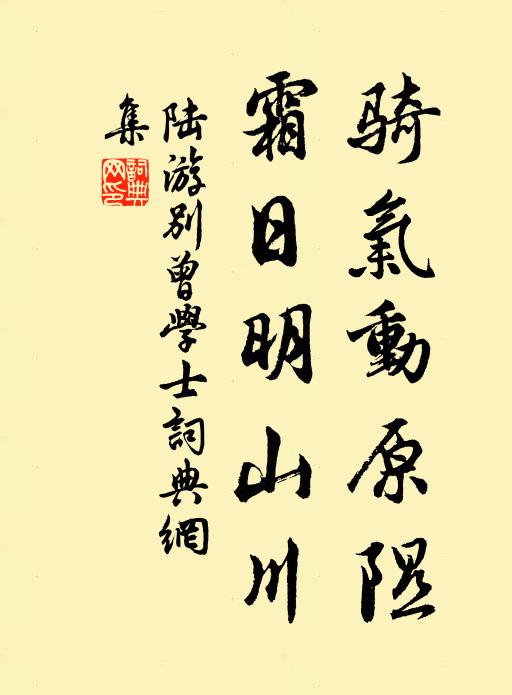 騎氣動原隰
霜日明山川
陸游別曾學士詞典網
集
詞典
网印